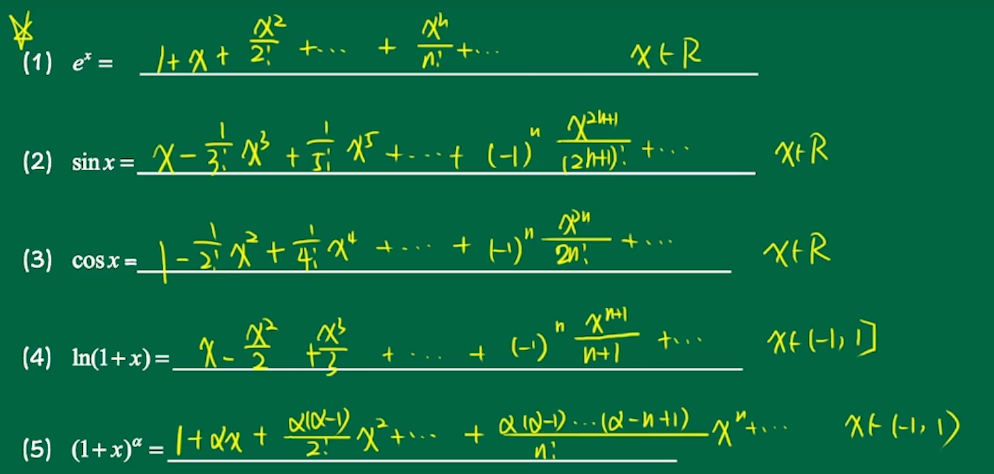 ☆
(1) e^x = 1+x+\frac{x^2}{2!}+...+\frac{x^n}{n!}+... x∈R
(2) sin x = x-\frac{1}{3!}x^3+\frac{1}{5!}x^5+...+(-1)^n\frac{x^{2n+1}}{(2n+1)!}+... x∈R
(3) cos x = 1-\frac{1}{2!}x^2+\frac{1}{4!}x^4+...+(-1)^n\frac{x^{2n}}{2n!}+... x∈R
(4) ln(1+x) = x-\frac{x^2}{2}+\frac{x^3}{3}+...+(-1)^n\frac{x^{n+1}}{n+1}+... x∈(-1,1]
(5) (1+x)^α = 1+αx+\frac{α(α-1)}{2!}x^2+...+\frac{α(α-1)...(α-n+1)}{n!}x^n+... x∈(-1,1)